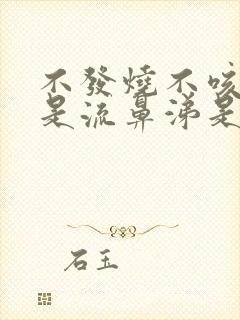 不發燒不咳
是流鼻涕是
石玉